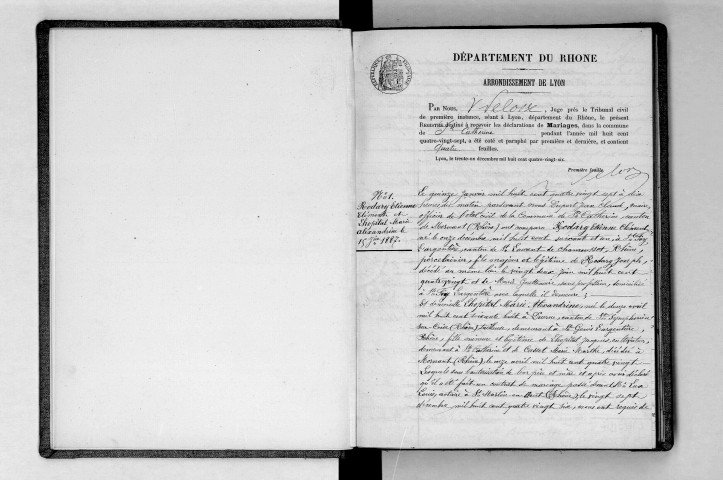 DÉPARTEMENT DU RHONE
ARRONDISSEMENT DE LYON
PAR NOUS, Juge près le Tribunal civil
de première instance, séant à Lyon, département du Rhône, le présent
REGISTRE destiné à recevoir les déclarations de Mariages, dans la commune
de Ste Catherine pendant l'année mil huit cent
quatre-vingt-sept, a été coté et paraphé par première et dernière, et contient
quatre feuilles.
Lyon, le trente-un décembre mil huit cent quatre-vingt-six.
Première feuille.
N° 1.
Rodary Etienne
Clément et
Lhopital Marie
Alexandrine le
15 Jer 1887.
Le quinze Janvier mil huit cent quatre vingt sept à dix
heures du matin pardevant nous Duport Jean Claude, maire,
officier de l'état civil de la Commune de Ste Catherine canton
de Mornant (Rhône) ont comparu Rodary Etienne Clément,
né le onze décembre mil huit cent soixante et un, à Ste Foy
l'argentière, canton de St Laurent de Chamousset, Rhône,
fils majeur et légitime de Rodary Joseph,
décédé au même lieu le vingt deux Juin mil huit cent
quatre vingt et de Marie sans profession, domiciliée
à Ste Foy l'argentière avec laquelle il demeure ;
et demoiselle Lhopital Marie Alexandrine, née le douze avril
mil huit cent soixante huit à canton de St Symphorien
sur Coise (Rhône) tailleuse, demeurant à St Genis l'argentière,
Rhône, fille mineure et légitime de Lhopital Jacques,
demeurant à Ste Catherine et de Marie Marthe, décédée à
Mornant (Rhône) le onze avril mil huit cent quatre vingt
Lesquels sous l'autorisation de leur père et mère et après avoir déclaré
qu'il a été fait un contrat de mariage passé devant Me
Louis, notaire à St Martin en haut (Rhône), le vingt sept
décembre mil huit cent quatre vingt six, nous ont requis de